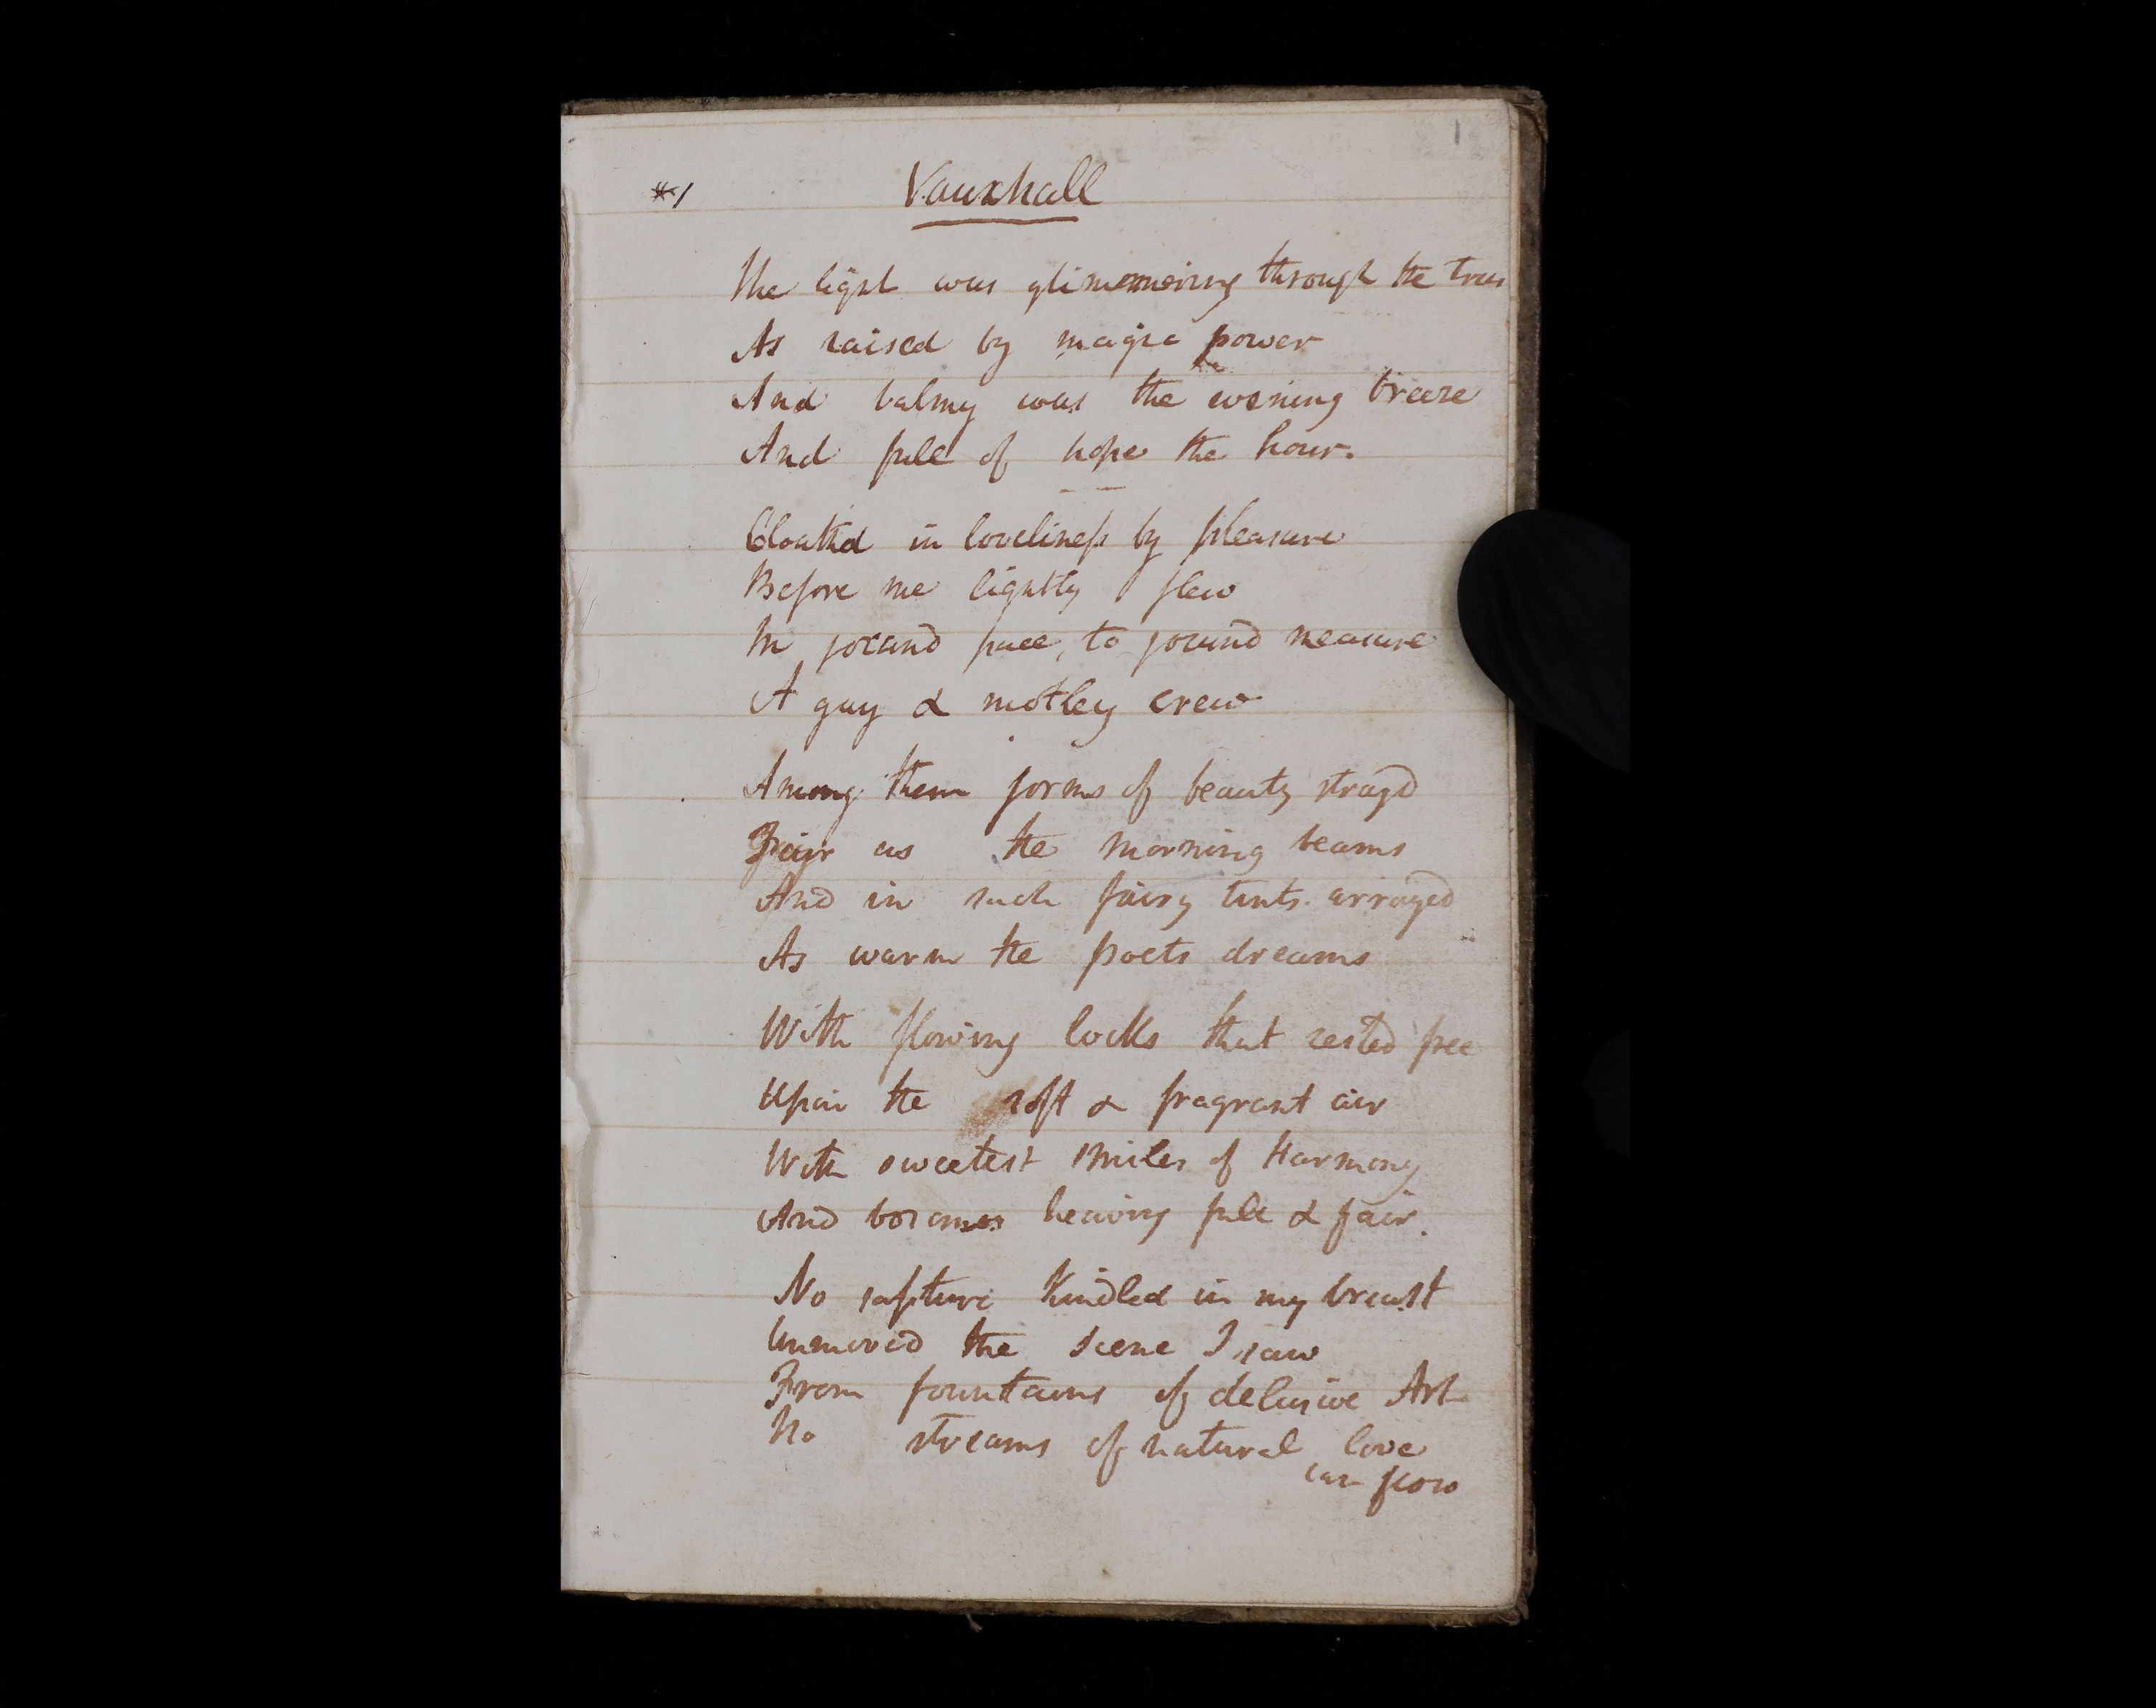 1
*1 Vauxhall
The light was glimmering through the trees
As raised by magic power
And balmy was the evening breeze
And full of hope the hour.
Cloathd in loveliness by pleasure
Before me lightly flew
In jocund pace, to jocund measure
A gay & motley crew
Among them forms of beauty strayd
Fair as the morning beams
And in such fairy tints arrayed
As warm the poets dreams
With flowing locks that rested free
Upon the soft & fragrant air
With sweetest smiles of Harmony
And bosoms heaving full & fair.
No rapture kindled in my breast
Unmoved the scene I saw
From fountains of delusive Art
No streams of natural love
can flow